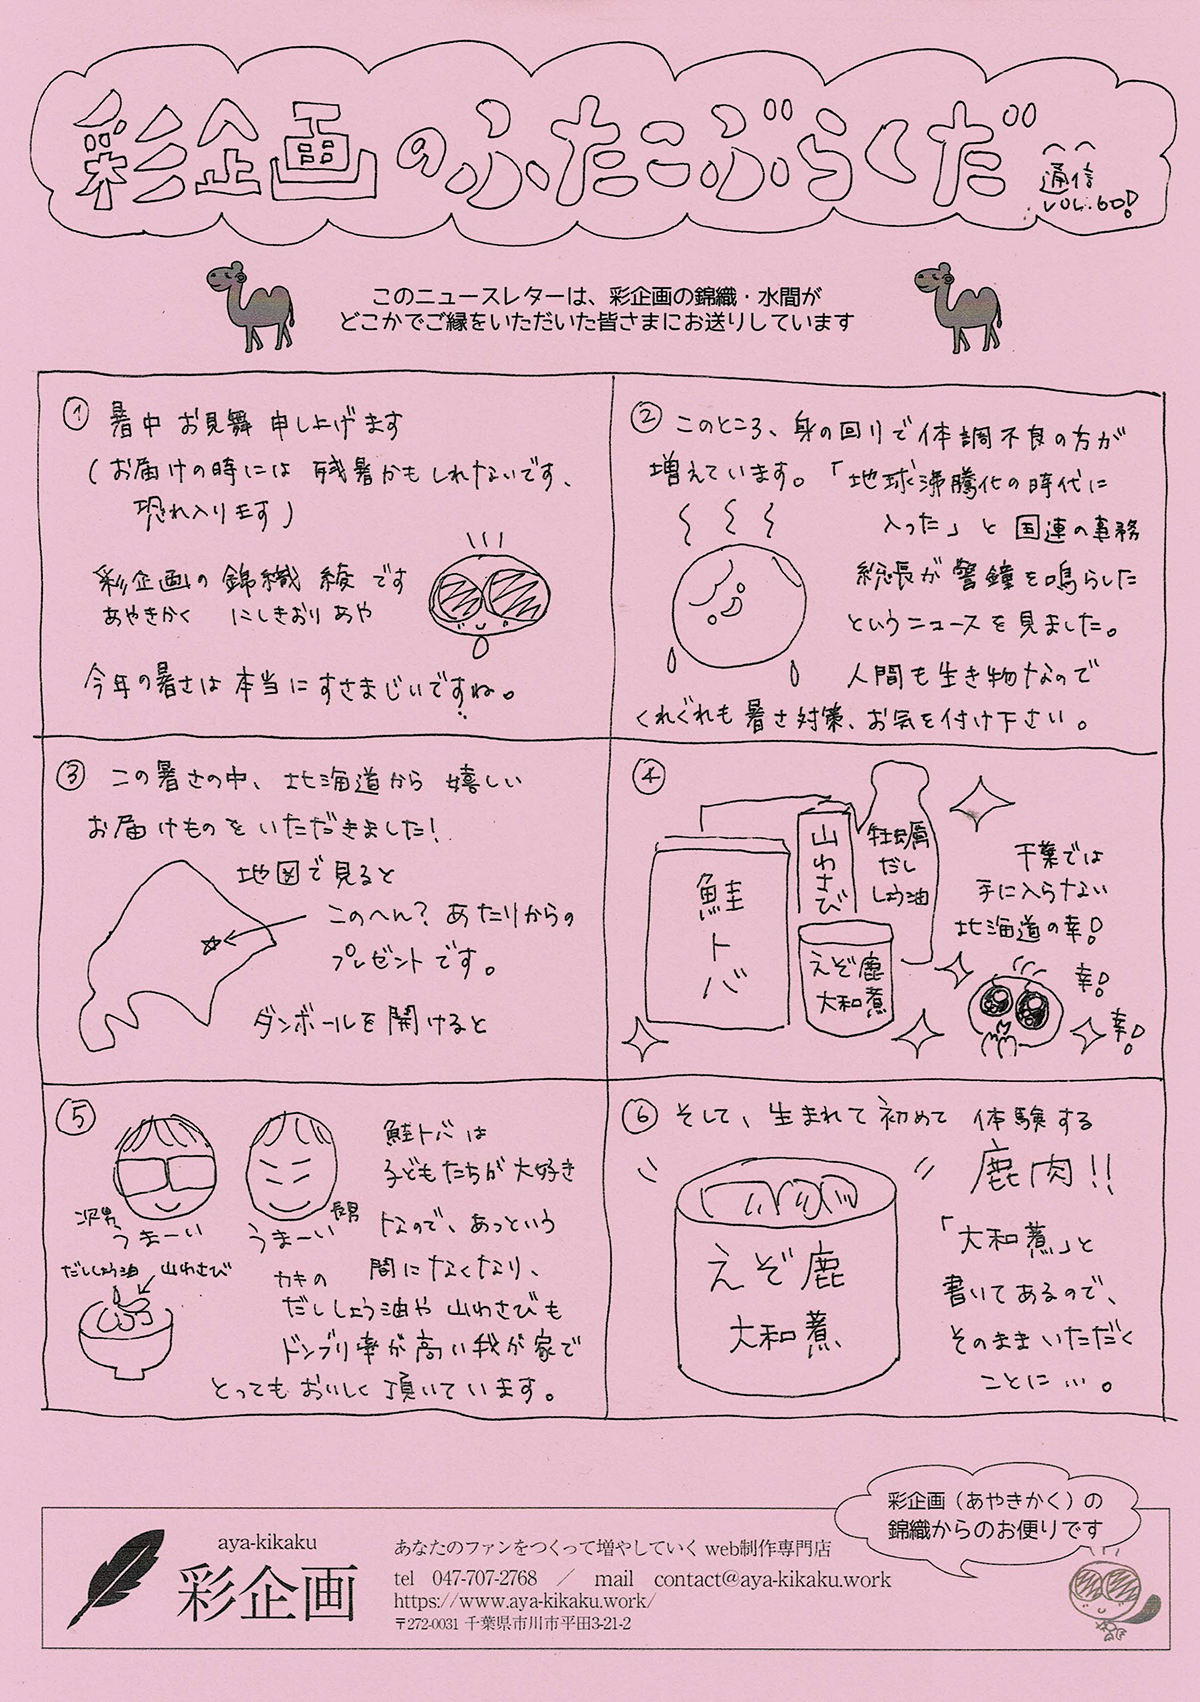 彩企画のふたこぶらくだ
通信
VOL.60!
このニュースレターは、彩企画の錦織・水間が
どこかでご縁をいただいた皆さまにお送りしています
① 暑中お見舞申し上げます
(お届けの時には残暑かもしれないです、
恐れ入ります)
彩企画の錦織 綾です
あやきかく にしきおり あや
今年の暑さは本当にすさまじいですね。
② このところ、身の回りで体調不良の方が
増えています。「地球沸騰化の時代に
入った」と国連の事務
総長が警鐘を鳴らした
というニュースを見ました。
人間も生き物なので
くれぐれも暑さ対策、お気を付け下さい。
③ この暑さの中、北海道から嬉しい
お届けものをいただきました!
地図で見ると
このへん?あたりからの
プレゼントです。
ダンボールを開けると
④
鮭トバ
山わさび
牡蠣
だし
しょう油
えぞ鹿
大和煮
千葉では
手に入らない
北海道の幸!
幸!
幸!
⑤
次男
うまーい
長男
うまーい
だししょう油 山わさび
鮭トバは
子どもたちが大好き
なので、あっという
間になくなり、
カキの
だししょう油や山わさびも
ドンブリ率が高い我が家で
とってもおいしく頂いています。
⑥ そして、生まれて初めて体験する
鹿肉!!
えぞ鹿
大和煮
「大和煮」と
書いてあるので、
そのままいただく
ことに…。
彩企画(あやきかく)の
錦織からのお便りです
aya-kikaku
彩企画
あなたのファンをつくって増やしていく web制作専門店
tel 047-707-2768 / mail contact@aya-kikaku.work
https://www.aya-kikaku.work/
〒272-0031 千葉県市川市平田3-21-2